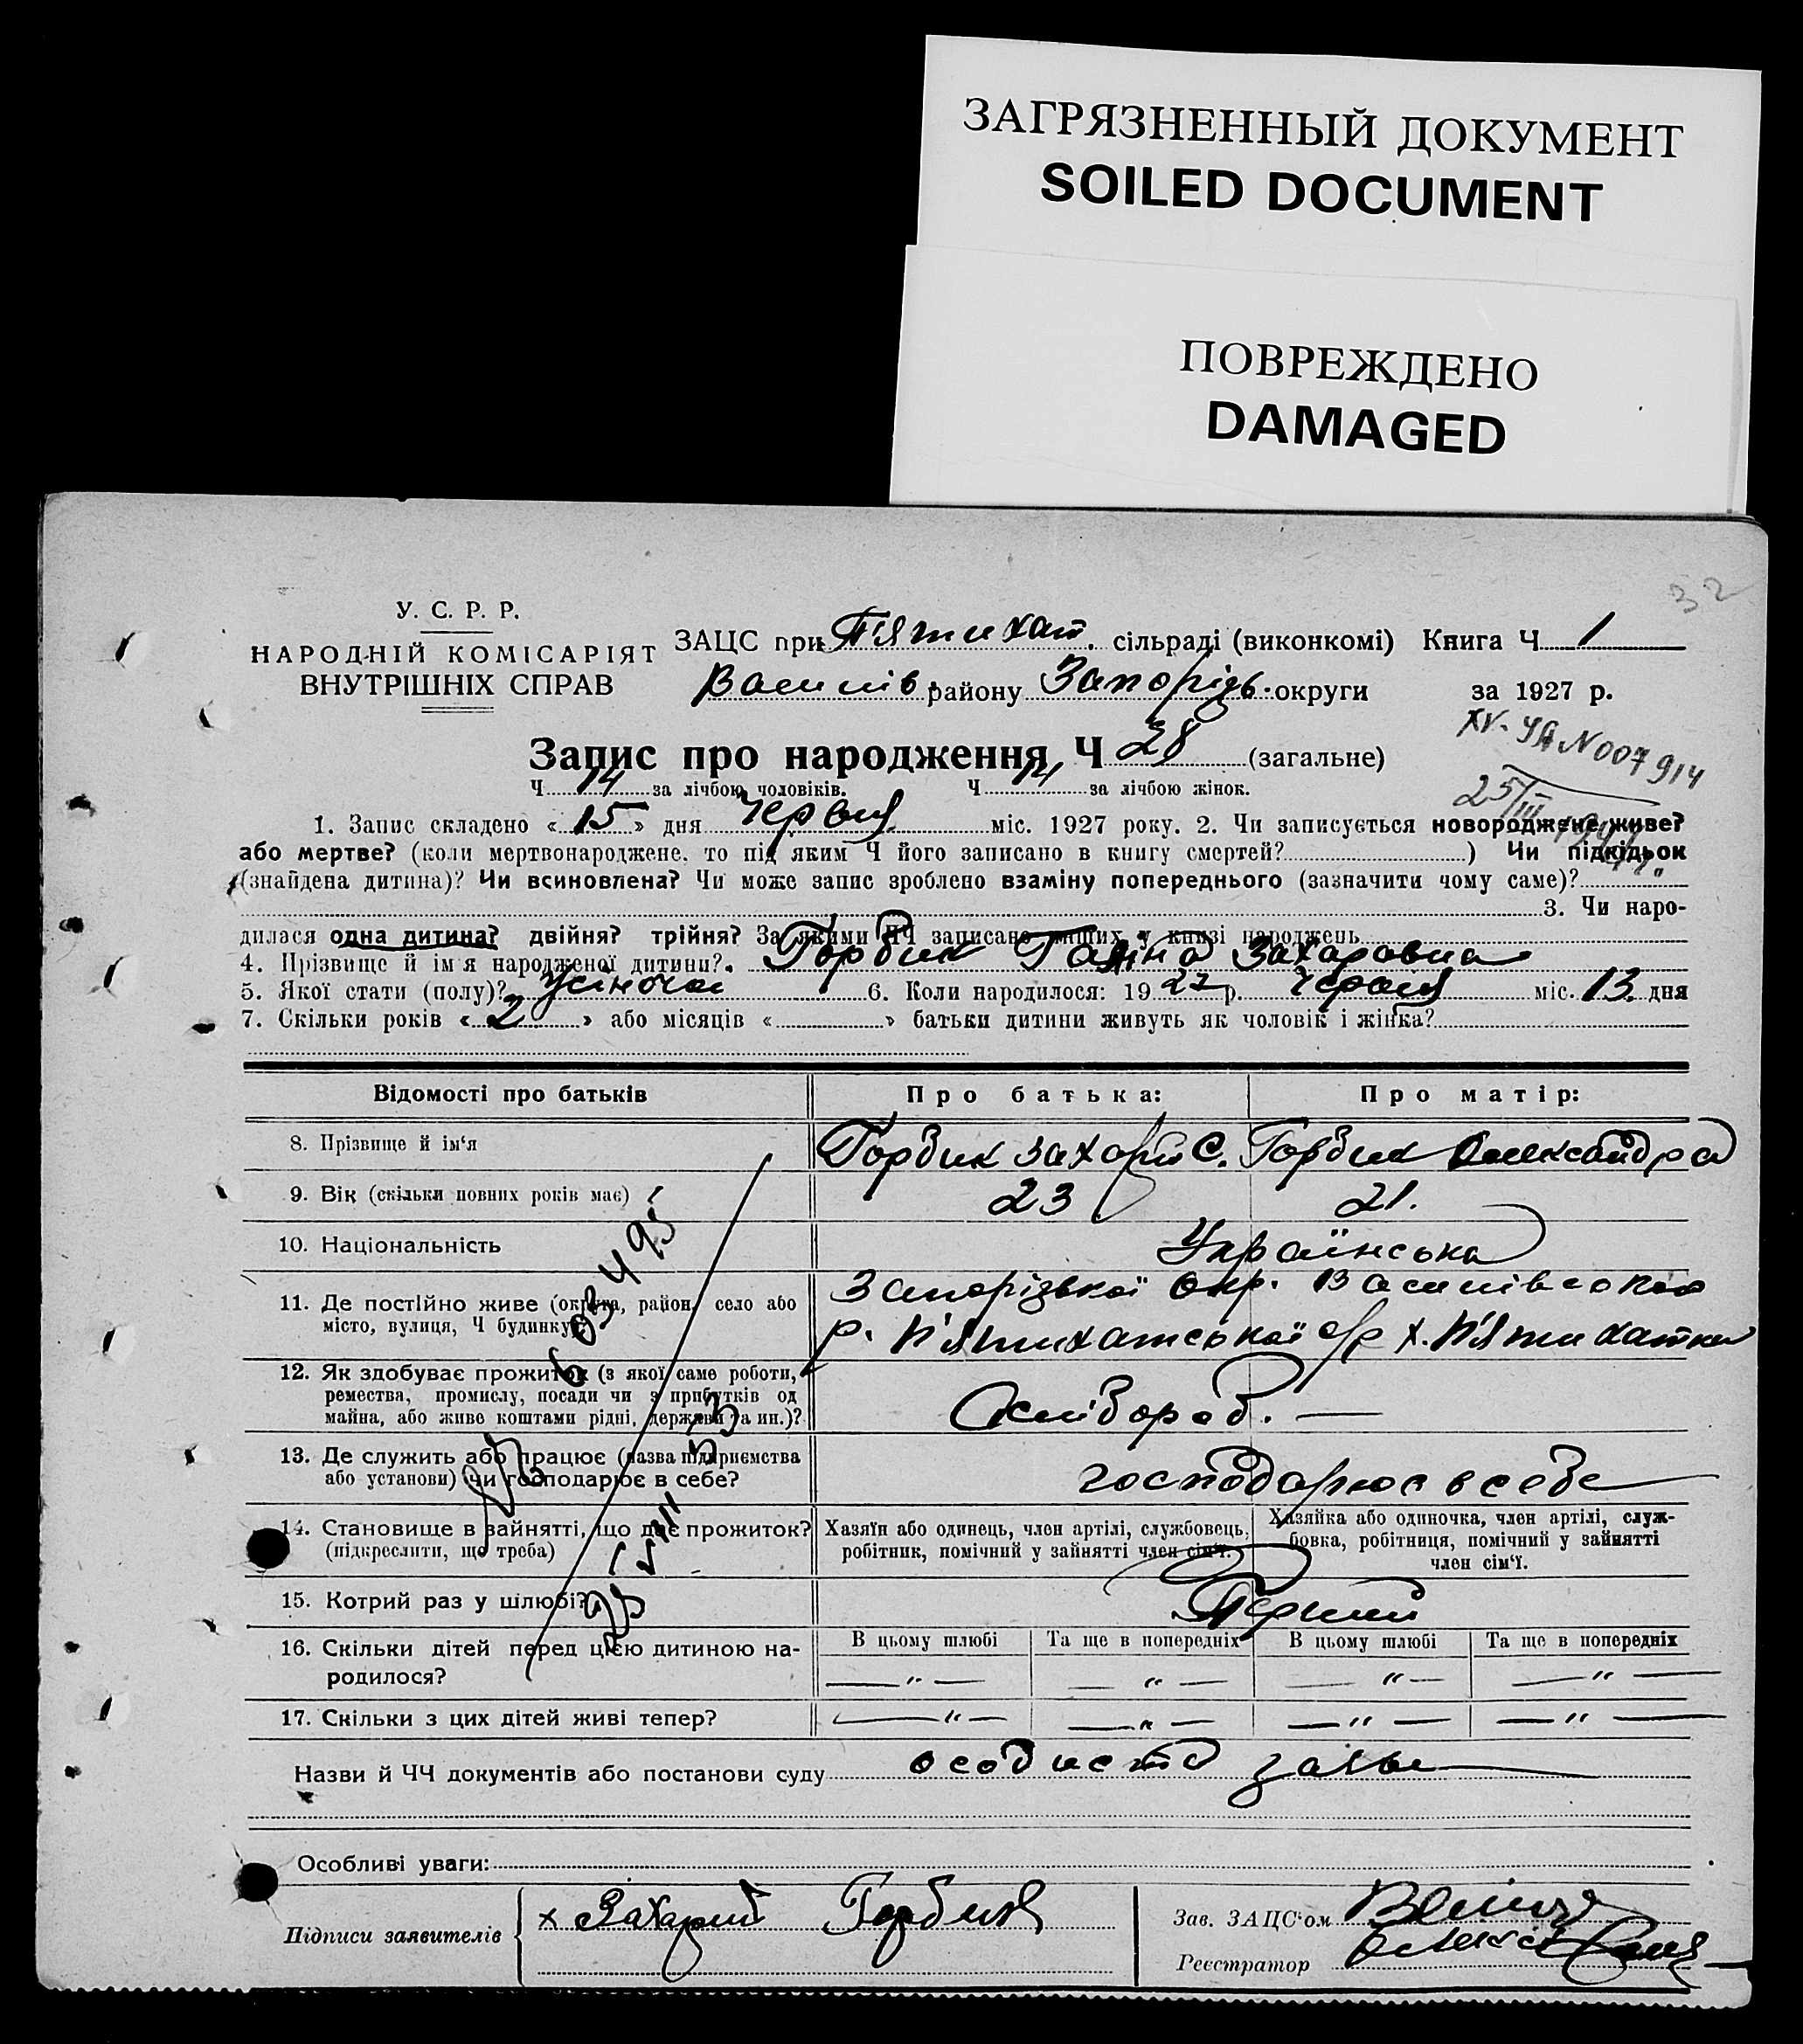 ЗАГРЯЗНЕННЫЙ ДОКУМЕНТ
SOILED DOCUMENT
ПОВРЕЖДЕНО
DAMAGED
32
У. С. Р. Р.
НАРОДНІЙ КОМІСАРІЯТ
ВНУТРІШНІХ СПРАВ
ЗАЦС при П'ятихат. сільраді (виконкомі) Книга Ч 1
Василів. району Запорізь. округи за 1927 р.
Запис про народження Ч 28 (загальне)
N 007914
25/III
Ч 14 за лічбою чоловіків. Ч 14 за лічбою жінок.
1. Запис складено « 15 » дня Червня міс. 1927 року. 2. Чи записується новороджене живе?
або мертве? (коли мертвонароджене, то під яким Ч його записано в книгу смертей? ) Чи підкідьок
(знайдена дитина)? Чи всиновлена? Чи може запис зроблено взаміну попереднього (зазначити чому саме)?
3. Чи наро-
дилася одна дитина? двійня? трійня? За якими ЧЧ записано інших у книзі народжень
4. Прізвище й ім'я народженої дитини? Горбик Галіна Захаровна
5. Якої стати (полу)? жіночої 6. Коли народилося: 1927 р. Червня міс. 13 дня
7. Скільки років « 2 » або місяців « » батьки дитини живуть як чоловік і жінка?
Відомості про батьків Про батька: Про матір:
8. Прізвище й ім'я Горбик Захарій С. Горбик Олександра
9. Вік (скільки повних років має) 23 21.
10. Національність Українська
11. Де постійно живе (округа, район, село або
місто, вулиця, Ч будинку)?
Запорізької окр. Василівсокоо
р. П'ятихатської с/р х. П'ятихатки
12. Як здобуває прожиток (з якої саме роботи,
ремества, промислу, посади чи з прибутків од
майна, або живе коштами рідні, держави та ин.)?
Хлібороб. —
13. Де служить або працює (назва підприємства
або установи) чи господарює в себе?
господарює в себе
14. Становище в зайнятті, що дає прожиток?
(підкреслити, що треба)
Хазяїн або одинець, член артілі, службовець,
робітник, помічний у зайнятті член сім'ї.
Хазяйка або одиночка, член артілі, служ-
бовка, робітниця, помічний у зайнятті
член сім'ї.
15. Котрий раз у шлюбі? Перший
16. Скільки дітей перед цією дитиною на-
родилося?
В цьому шлюбі Та ще в попередніх В цьому шлюбі Та ще в попередніх
— " — — " — — " — — " —
17. Скільки з цих дітей живі тепер? — " — — " — — " — — " —
Назви й ЧЧ документів або постанови суду особисто заяв
Особливі уваги:
Підписи заявителів х Захарий Горбик
Зав. ЗАЦС'ом
Реєстратор